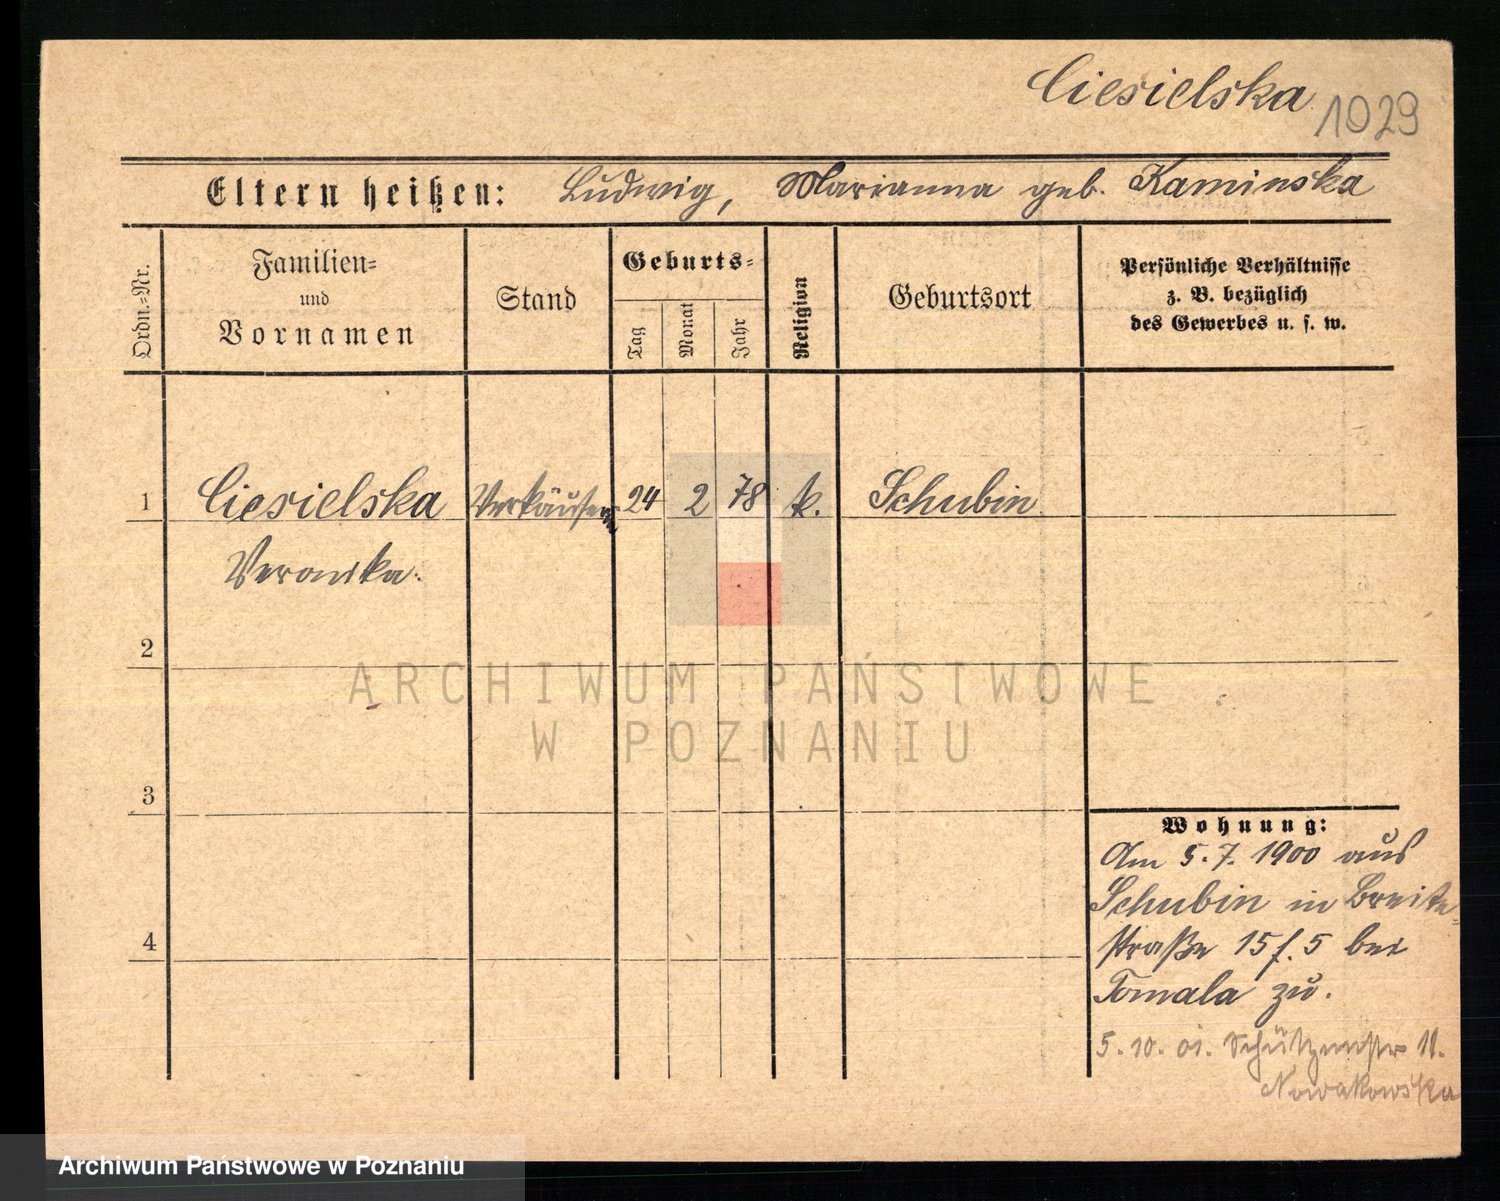 Ciesielska
1029
Eltern heißen: Ludwig, Marianna geb. Kaminska
Ordn.-Nr.
Familien-
und
Vornamen
Stand
Geburts-
Tag
Monat
Jahr
Religion
Geburtsort
Persönliche Verhältnisse
z. B. bezüglich
des Gewerbes u. s. w.
1 Ciesielska Verkäuferin 24 2 78 k. Schubin
Veronika.
2
3
4
Wohnung:
Am 5.7. 1900 aus
Schubin in Breite-
straße 15 f. 5 bei
Tomala zu.
5. 10. 01. Schützenstr 11.
Nowakowska
ARCHIWUM PAŃSTWOWE
W POZNANIU
Archiwum Państwowe w Poznaniu